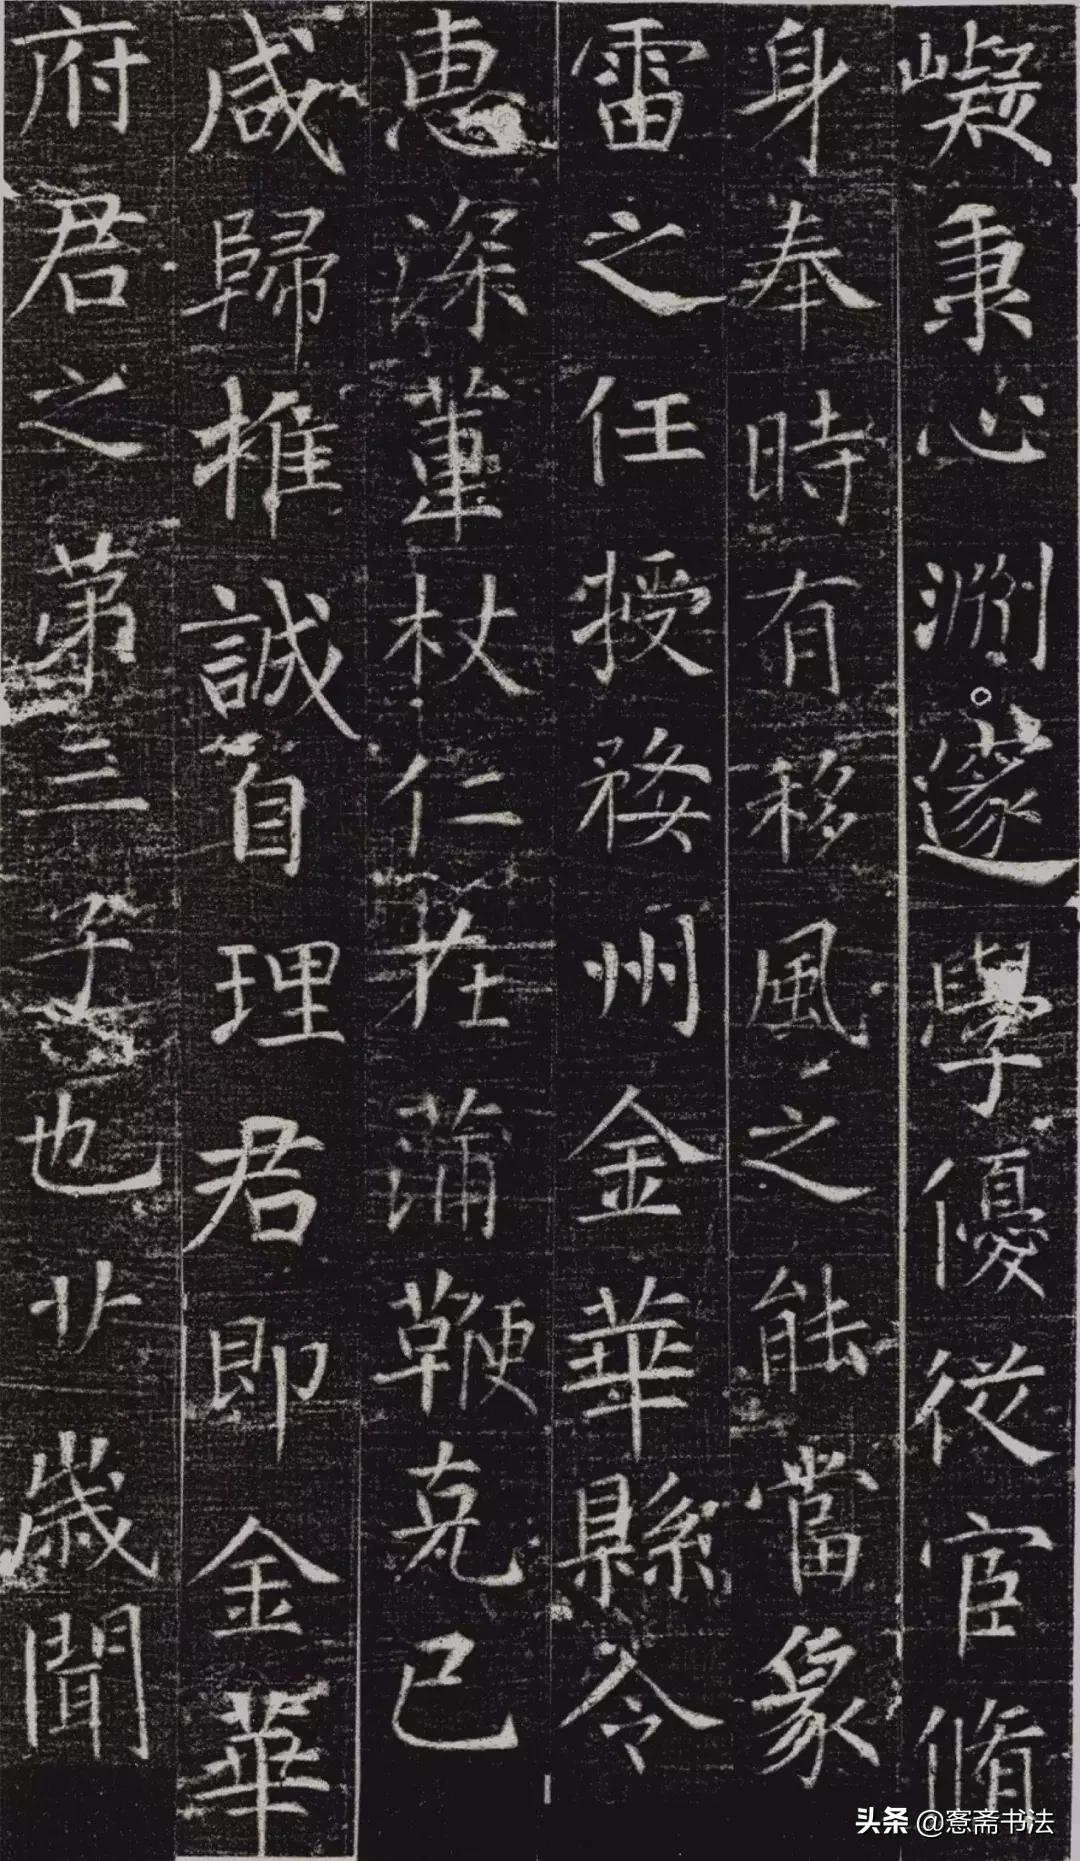 嶷秉心淵邃學優從宦脩
身奉時有移風之能當象
雷之任授婺州金華縣令
惠深董杖仁在蒲鞭克已
咸歸推誠自理君即金華
府君之第三子也廿歲聞
头条 @窓斋书法